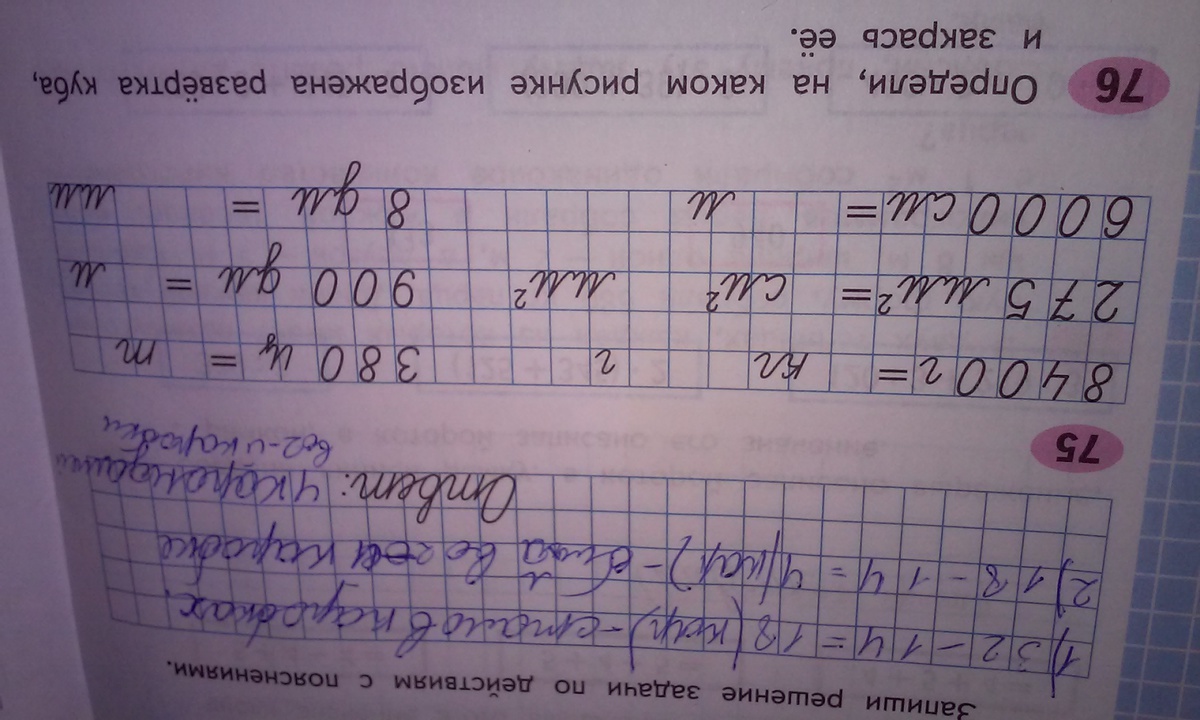 Запиши решение задачи по действиям с пояснениями.
1) 32 - 14 = 18 (кар) - стало в коробках.
2) 18 - 14 = 4 (кар) - во 2 коробке
Ответ: 4 карандаша
во 2-й коробке
75
8400 г = кг г 380 ц = т
275 мм² = см² мм² 900 дм = м
6000 см = м 8 дм = мм
76 Определи, на каком рисунке изображена развёртка куба,
и закрась её.